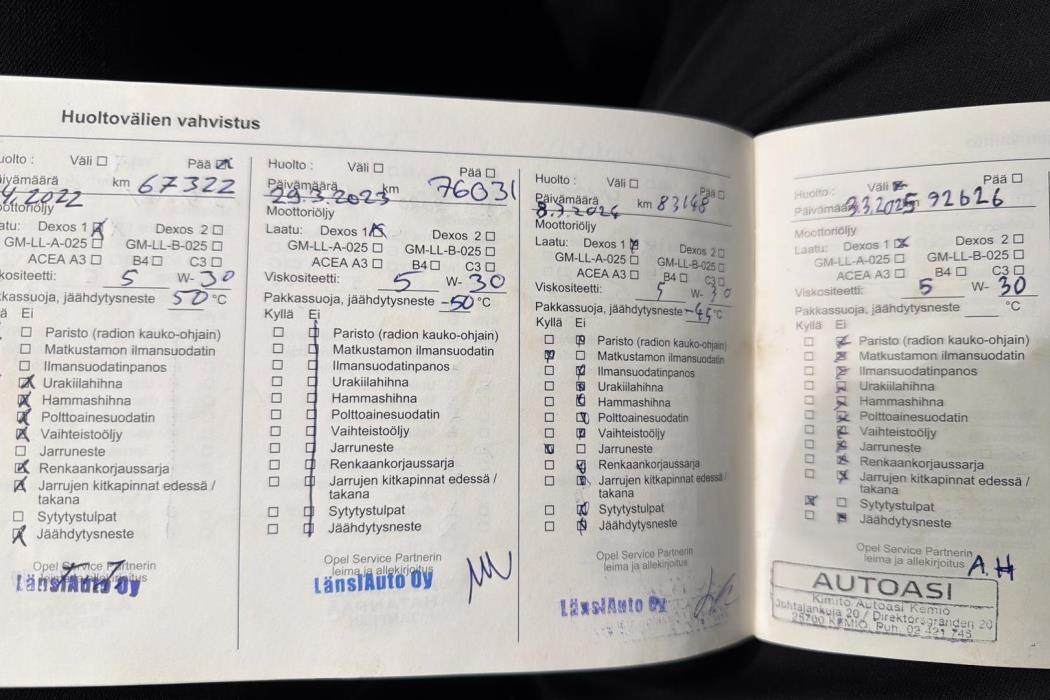 Huoltovälien vahvistus
uolto : Väli ☐ Pää ☒
äivämäärä km 67322
4.2022
oottoriöljy
atu: Dexos 1 ☒ Dexos 2 ☐
GM-LL-A-025 ☐ GM-LL-B-025 ☐
ACEA A3 ☐ B4 ☐ C3 ☐
skositeetti: 5 W- 30
kkassuoja, jäähdytysneste 50 °C
ä Ei
☐ Paristo (radion kauko-ohjain)
☐ Matkustamon ilmansuodatin
☐ Ilmansuodatinpanos
☒ Urakiilahihna
☒ Hammashihna
☒ Polttoainesuodatin
☒ Vaihteistoöljy
☐ Jarruneste
☒ Renkaankorjaussarja
☒ Jarrujen kitkapinnat edessä /
takana
☐ Sytytystulpat
☒ Jäähdytysneste
Opel Service Partnerin
leima ja allekirjoitus
LänsiAuto Oy
Huolto : Väli ☐ Pää ☐
Päivämäärä km 76031
29.3.2023
Moottoriöljy
Laatu: Dexos 1 ☒ Dexos 2 ☐
GM-LL-A-025 ☐ GM-LL-B-025 ☐
ACEA A3 ☐ B4 ☐ C3 ☐
Viskositeetti: 5 W- 30
Pakkassuoja, jäähdytysneste -50 °C
Kyllä Ei
☐ ☐ Paristo (radion kauko-ohjain)
☐ ☐ Matkustamon ilmansuodatin
☐ ☐ Ilmansuodatinpanos
☐ ☐ Urakiilahihna
☐ ☐ Hammashihna
☐ ☐ Polttoainesuodatin
☐ ☐ Vaihteistoöljy
☐ ☐ Jarruneste
☐ ☐ Renkaankorjaussarja
☐ ☐ Jarrujen kitkapinnat edessä /
takana
☐ ☐ Sytytystulpat
☐ ☐ Jäähdytysneste
Opel Service Partnerin
leima ja allekirjoitus
LänsiAuto Oy
Huolto : Väli ☐ Pää ☐
Päivämäärä km 83148
8.3.2024
Moottoriöljy
Laatu: Dexos 1 ☒ Dexos 2 ☐
GM-LL-A-025 ☐ GM-LL-B-025 ☐
ACEA A3 ☐ B4 ☐ C3 ☐
Viskositeetti: 5 W- 30
Pakkassuoja, jäähdytysneste -45 °C
Kyllä Ei
☐ ☒ Paristo (radion kauko-ohjain)
☒ ☐ Matkustamon ilmansuodatin
☐ ☒ Ilmansuodatinpanos
☐ ☒ Urakiilahihna
☐ ☒ Hammashihna
☐ ☒ Polttoainesuodatin
☐ ☒ Vaihteistoöljy
☒ ☐ Jarruneste
☐ ☒ Renkaankorjaussarja
☐ ☒ Jarrujen kitkapinnat edessä /
takana
☐ ☒ Sytytystulpat
☐ ☒ Jäähdytysneste
Opel Service Partnerin
leima ja allekirjoitus
LänsiAuto Oy
Huolto : Väli ☒ Pää ☐
Päivämäärä 3.3.2025 92626
Moottoriöljy
Laatu: Dexos 1 ☒ Dexos 2 ☐
GM-LL-A-025 ☐ GM-LL-B-025 ☐
ACEA A3 ☐ B4 ☐ C3 ☐
Viskositeetti: 5 W- 30
Pakkassuoja, jäähdytysneste °C
Kyllä Ei
☐ ☒ Paristo (radion kauko-ohjain)
☐ ☒ Matkustamon ilmansuodatin
☐ ☒ Ilmansuodatinpanos
☐ ☒ Urakiilahihna
☐ ☒ Hammashihna
☐ ☒ Polttoainesuodatin
☐ ☒ Vaihteistoöljy
☐ ☒ Jarruneste
☐ ☒ Renkaankorjaussarja
☐ ☒ Jarrujen kitkapinnat edessä /
takana
☒ ☐ Sytytystulpat
☐ ☒ Jäähdytysneste
Opel Service Partnerin
leima ja allekirjoitus A.H
AUTOASI
Kimito Autoasi Kemiö
Johtajankuja 20 / Direktörsgränden 20
25700 KEMIÖ, Puh. 02 421 745